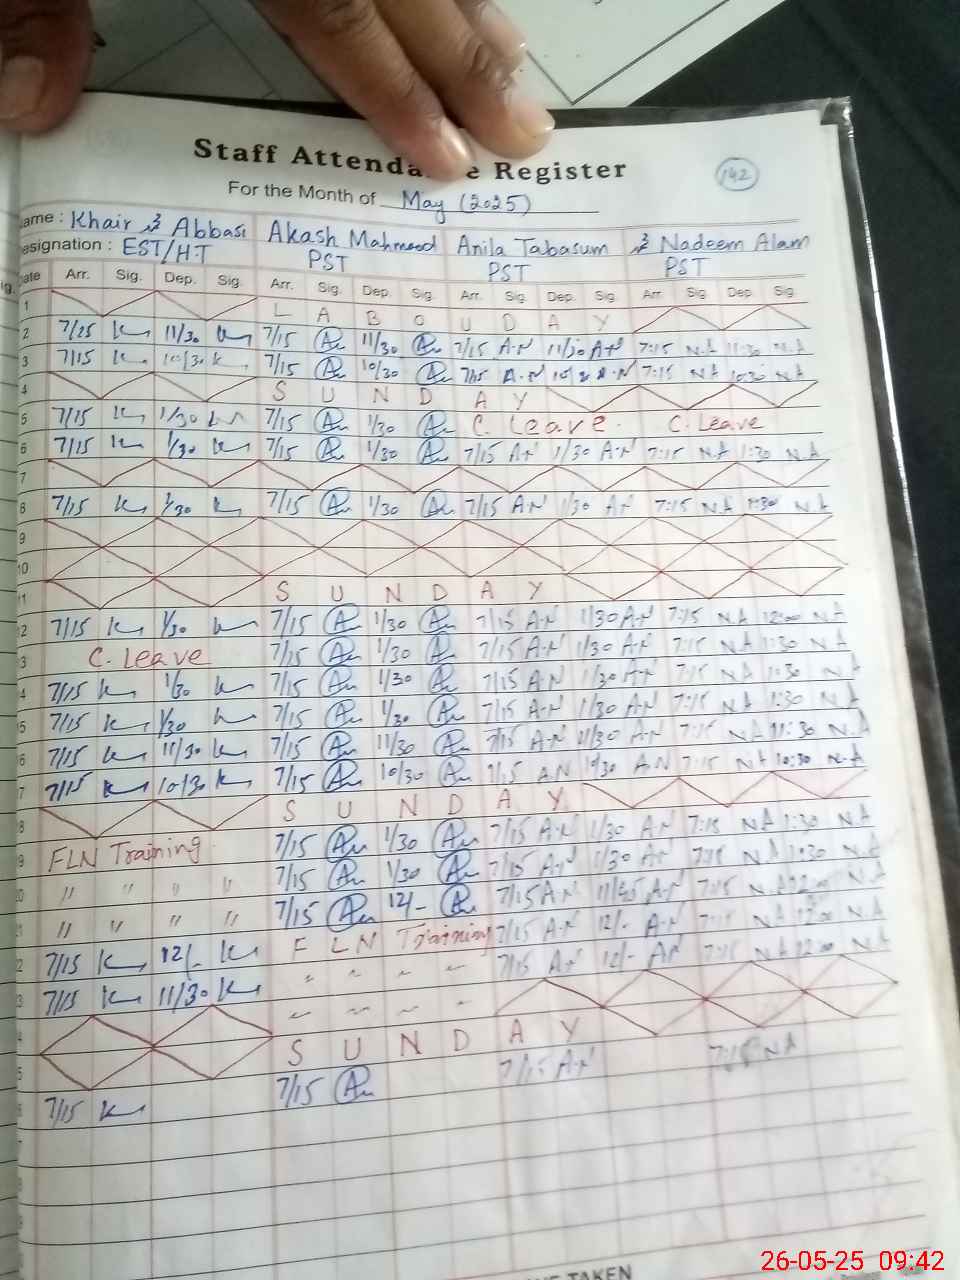 Staff Attenda e Register
142
For the Month of May (2025)
ame : Khair Abbasi Akash Mahmood Anila Tabasum Nadeem Alam
esignation : EST/HT PST PST PST
ig. Date Arr. Sig. Dep. Sig. Arr. Sig. Dep. Sig. Arr. Sig. Dep. Sig. Arr. Sig. Dep. Sig.
1 L A B O U D A Y
2 7/25 11/30 7/15 11/30 7/15 A.N 11/30 A.N 7:15 N.A 11:30 N.A
3 7/15 10/30 7/15 10/30 7/15 A.N 10/30 A.N 7:15 NA 10:30 NA
4 S U N D A Y
5 7/15 1/30 7/15 1/30 C. Leave. C. Leave
6 7/15 1/30 7/15 1/30 7/15 AN 1/30 A.N 7:15 NA 1:30 N.A
7
8 7/15 1/30 7/15 1/30 7/15 A.N 1/30 AN 7:15 NA 1:30 N.A
9
10
11 S U N D A Y
12 7/15 1/30 7/15 1/30 7/15 A.N 1/30 A.N 7:15 NA 12:00 NA
3 C. Leave 7/15 1/30 7/15 A.N 1/30 A.N 7:15 NA 1:30 NA
4 7/15 1/30 7/15 1/30 7/15 A.N 1/30 A.N 7:15 NA 1:30 NA
5 7/15 1/30 7/15 1/30 7/15 A.N 1/30 AN 7:15 NA 1:30 NA
6 7/15 11/30 7/15 11/30 7/15 A.N 11/30 A.N 7:15 NA 11:30 N.A
7 7/15 10/30 7/15 10/30 7/15 A.N 10/30 A.N 7:15 NA 10:30 N.A
8 S U N D A Y
9 FLN Training 7/15 1/30 7/15 A.N 1/30 AN 7:15 NA 1:30 NA
20 " " " " 7/15 1/30 7/15 A.N 1/30 AN 7:15 NA 1:30 N.A
21 " " " " 7/15 12/- 7/15 A.N 11/45 A.N 7:15 N.A 12:00 N.A
2 7/15 12/- F L N Training 7/15 A.N 12/- A.N 7:15 NA 12:00 N.A
3 7/15 11/30 " " " " 7/15 AN 12/- AN 7:15 NA 12:00 NA
4 " " " "
5 S U N D A Y
6 7/15 7/15 7/15 A.N 7:15 NA
7
8
TAKEN
26-05-25 09:42